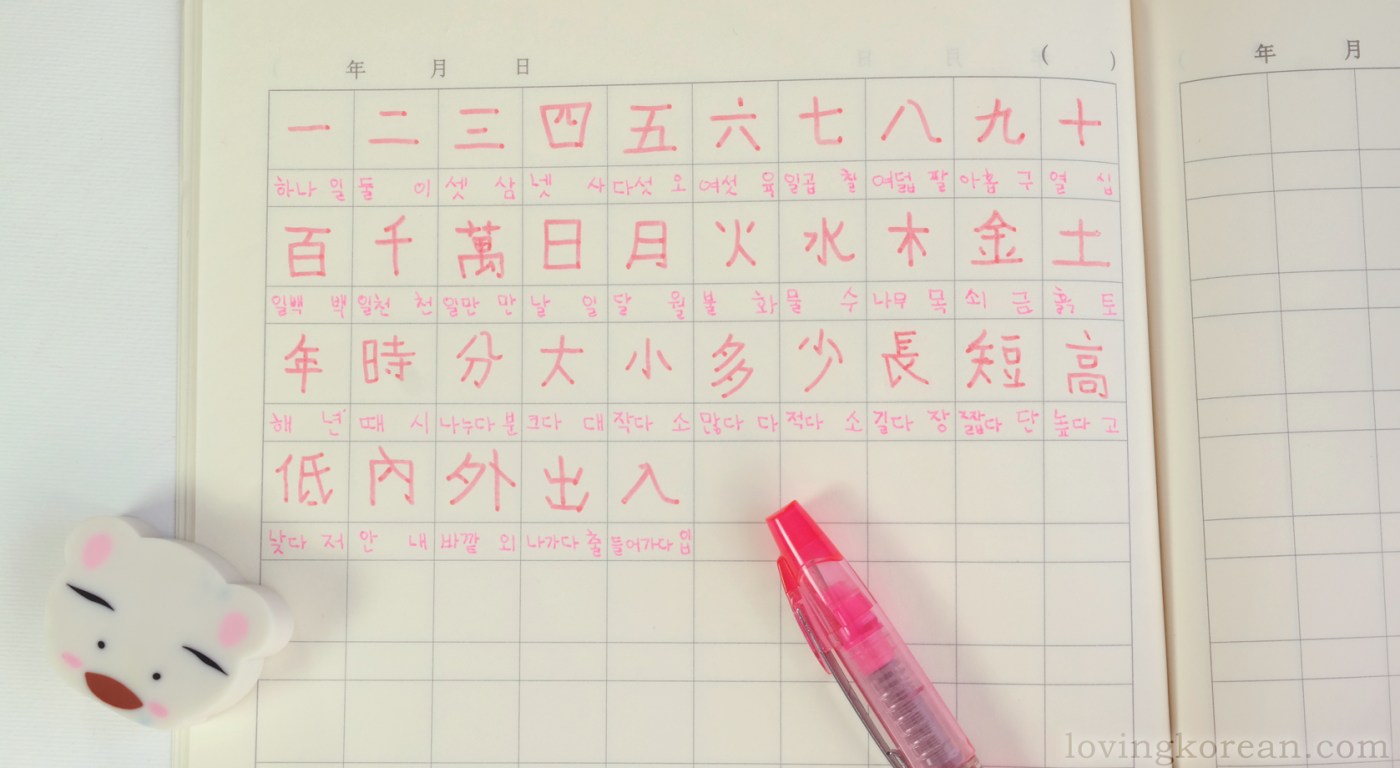 年 月 日 ( )
年 月
一 二 三 四 五 六 七 八 九 十
하나 일 둘 이 셋 삼 넷 사 다섯 오 여섯 육 일곱 칠 여덟 팔 아홉 구 열 십
百 千 萬 日 月 火 水 木 金 土
일백 백 일천 천 일만 만 날 일 달 월 불 화 물 수 나무 목 쇠 금 흙 토
年 時 分 大 小 多 少 長 短 高
해 년 때 시 나누다 분 크다 대 작다 소 많다 다 적다 소 길다 장 짧다 단 높다 고
低 內 外 出 入
낮다 저 안 내 바깥 외 나가다 출 들어가다 입
lovingkorean.com